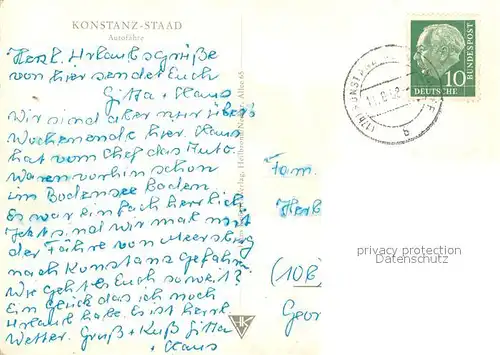 KONSTANZ-STAAD
Autofähre
Herzl. Urlaubsgrüße
von hier sendet Euch
Gitta + Klaus
Wir sind aber nur übers
Wochenende hier. Klaus
hat vom Chef das Auto.
Waren vorhin schon
im Bodensee baden
Es war einfach herrlich
Jetzt sind wir mal mit
der Fähre von Meersburg
nach Konstanz gefahren
Wie geht es Euch soweit?
Ein Glück das ich noch
Urlaub habe. Es ist herrl.
Wetter. Gruß + Kuß Gitta
+ Klaus
Heilbronn/Neckar, Allee 65
HK
10
DEUTSCHE
BUNDESPOST
KONSTANZ
b
Fam.
Herb
(10b)
Geor
privacy protection
Datenschutz